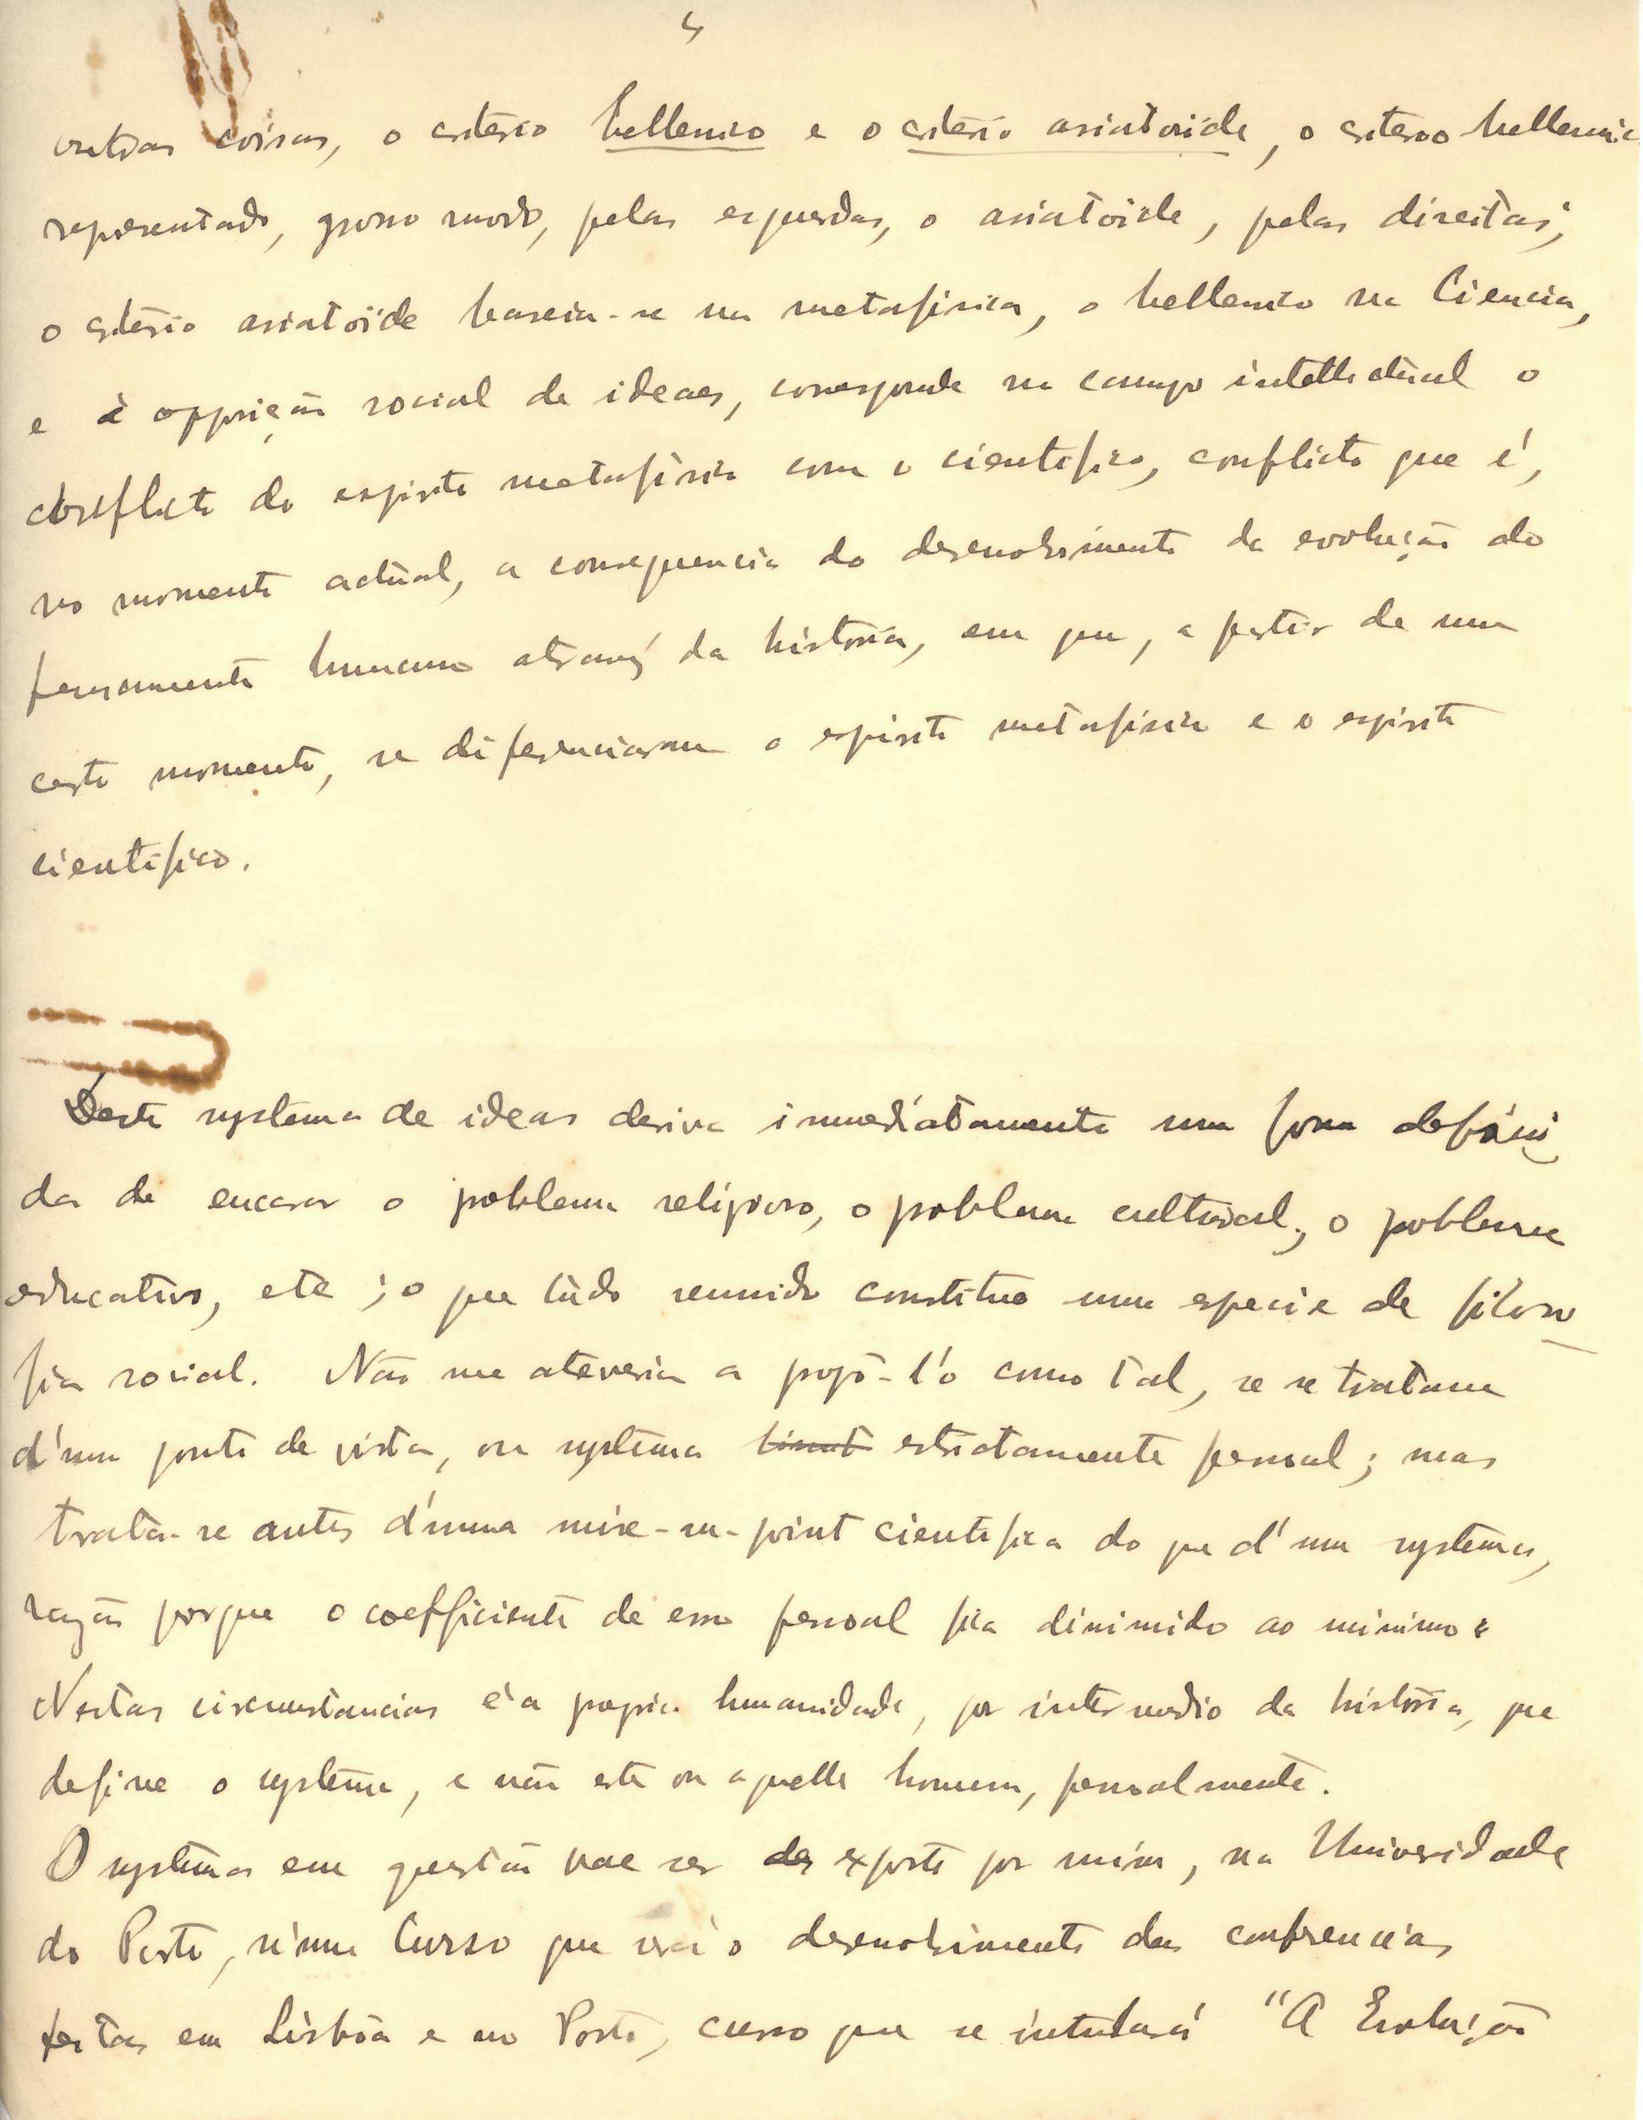 4
outras coisas, o critério hellenico e o critério asiatoíde, o criterio hellenic
representado, grosso modo, pelas esquerdas, o asiatoide, pelas direitas;
o critério asiatoíde baseia-se na metafisica, o hellenico na Ciencia,
e à opposição social de ideaes, corresponde no campo intellectual o
conflicto do espirito metafísico com o cientifico, conflicto que é,
no momento actual, a consequencia do desenvolvimento da evolução do
pensamento humano através da história, em que, a partir de um
certo momento, se diferenciaram o espirito metafísico e o espirito
cientifico.
Deste systema de ideas deriva immediatamente uma forma defini
da de encarar o problema religioso, o problema cultural, o problema
educativo, etc; o que tudo reunido constitue uma especie de filoso
fia social. Não me atreveria a propô-l'o como tal, se se tratasse
d'um ponto de vista, ou systema estrictamente pessoal; mas
trata-se antes d'uma mise-au-point cientifica do que d'um systema,
razão porque o coefficiente de erro pessoal fica diminuido ao minimo.
Nestas circunstancias é a propria humanidade, por intermedio da história, que
define o systema, e não este ou aquelle homem, pessoalmente.
O systema em questão vae ser exposto por mim, na Universidade
do Porto, n'um Curso que será o desenvolvimento das conferencias
feitas em Lisbôa e no Porto, curso que se intitulará "A Evolução